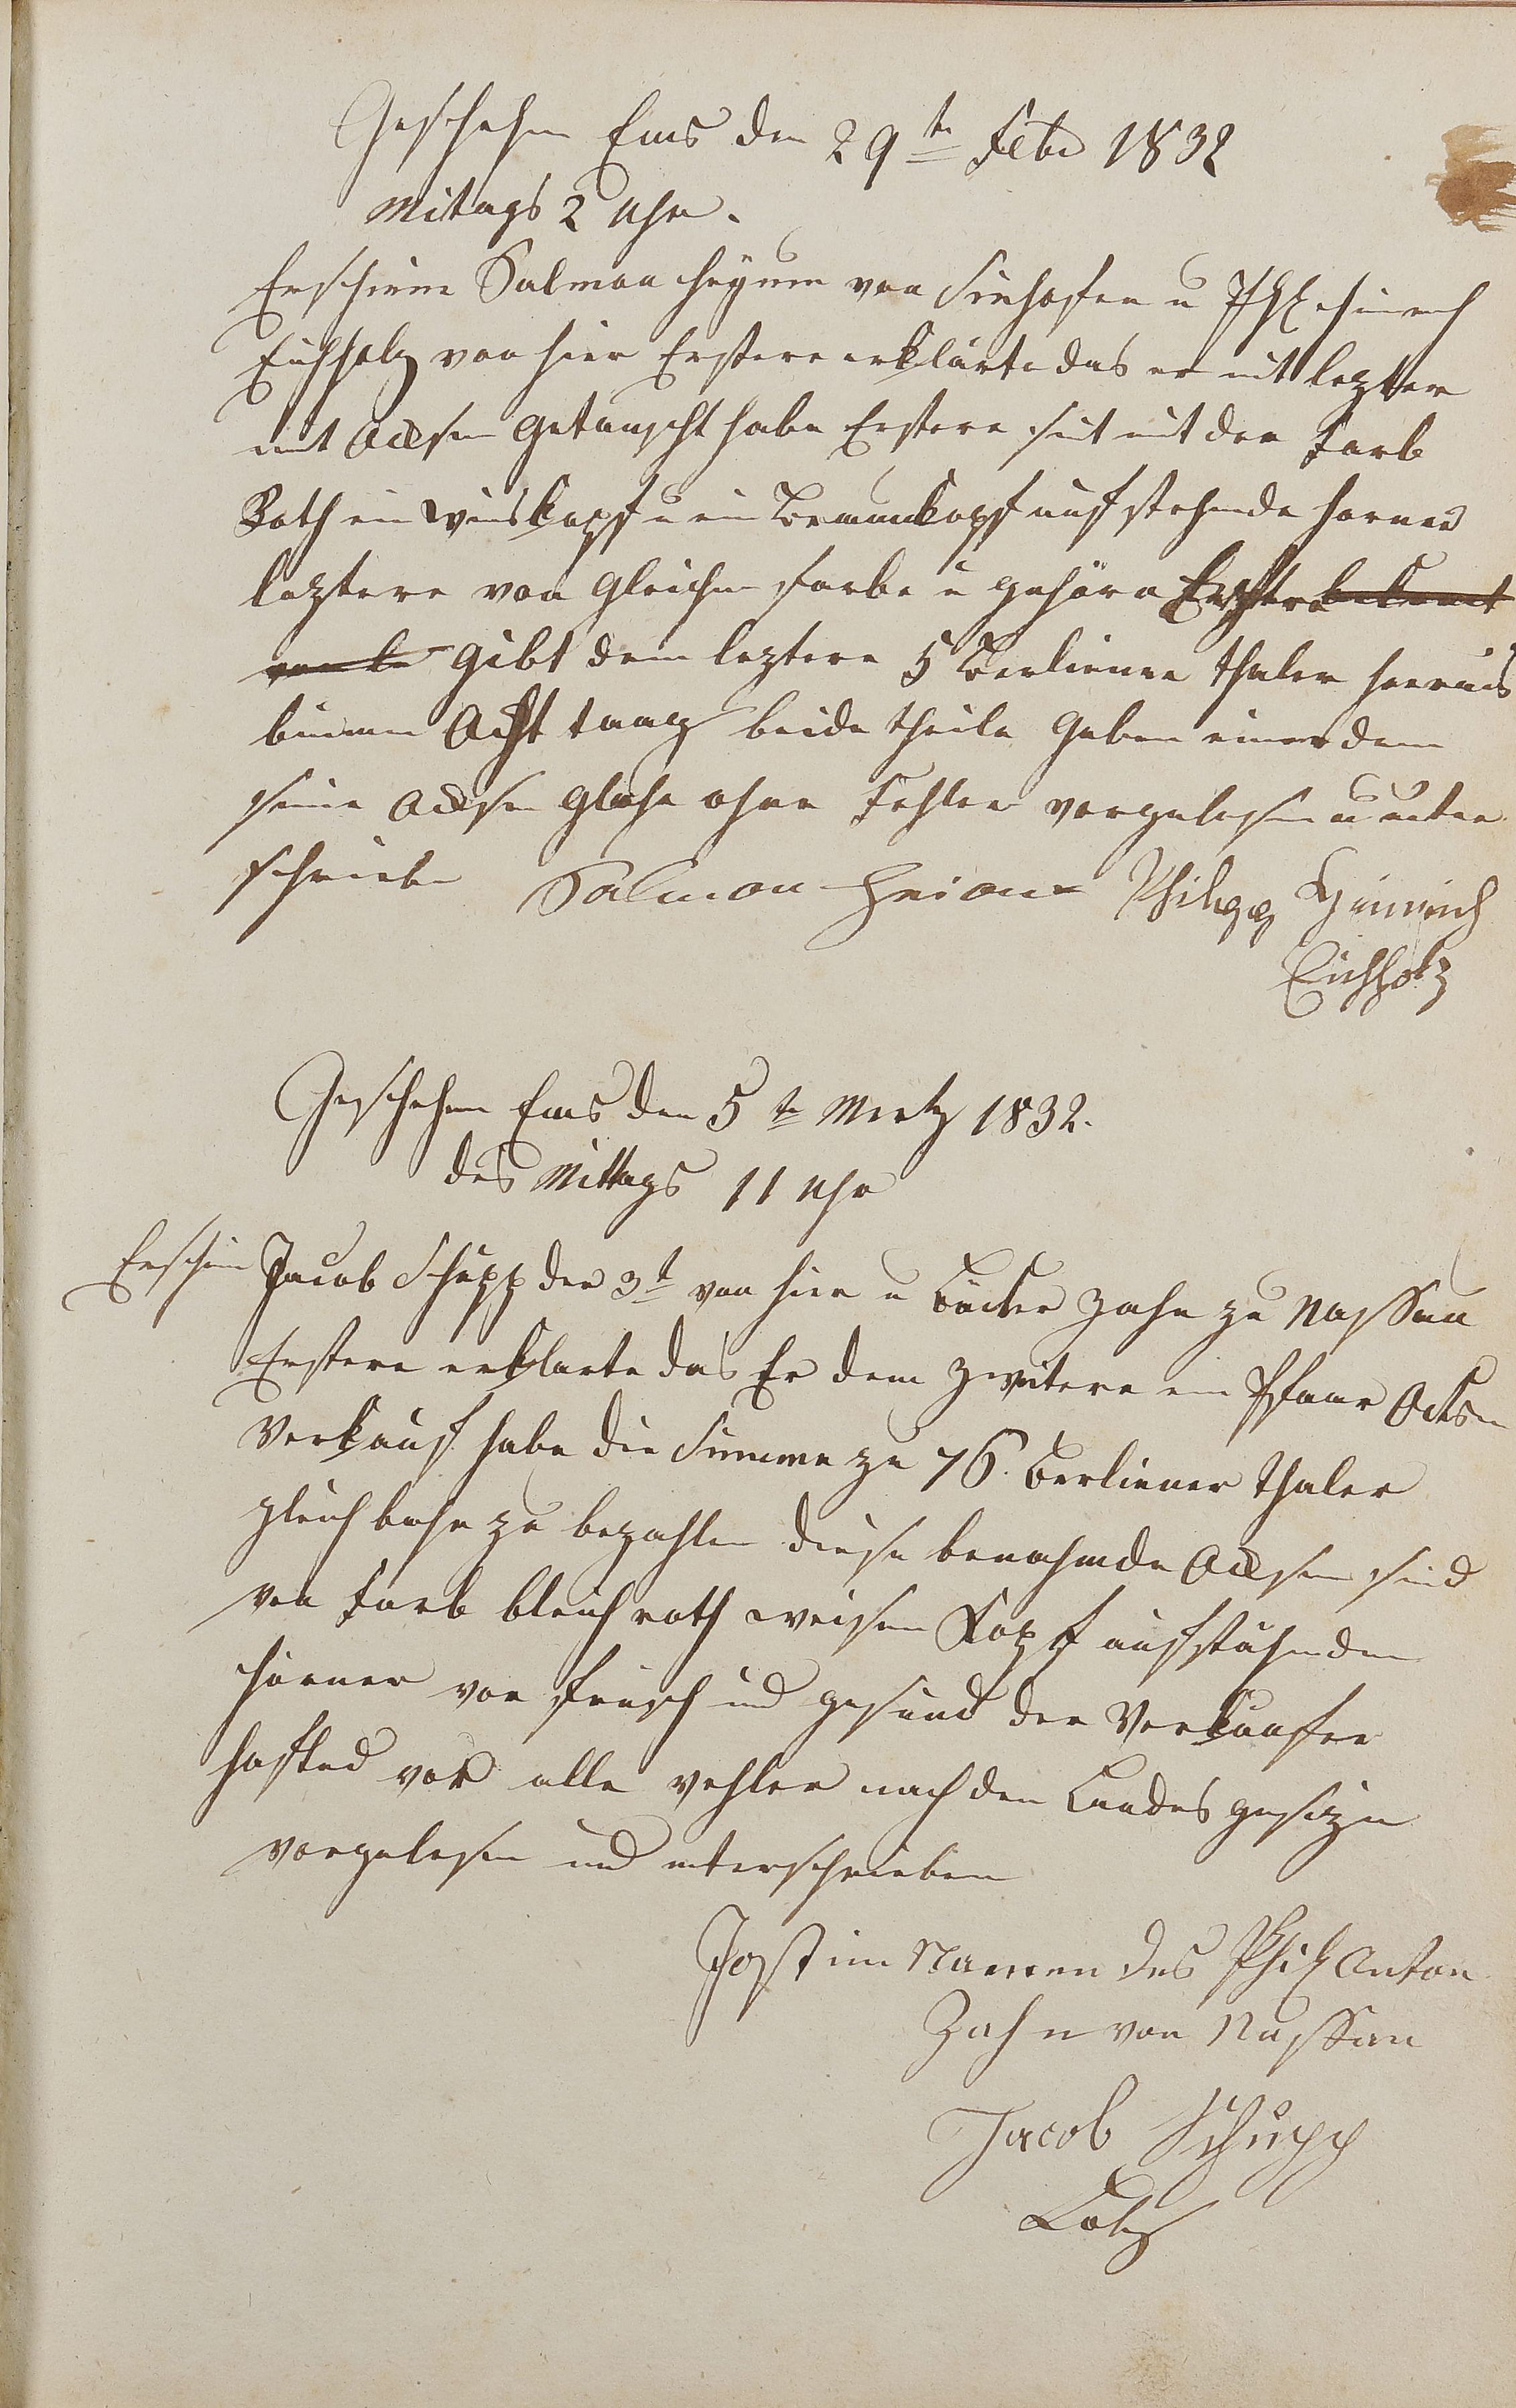 Geschehen Ems den 29ten Febr 1832
Mitags 2 Uhr.
Erschiene Salmon Heyum von Sinhofen u Phl Hinrich
Eichholz von hier Erstere erklärte das er mit leztere
mit Ocksen getauscht habe Erstere seit mit der Farb
Roth ein Weiskopf u ein Braunkopf aufstehende Horner
leztere von gleichen Farbe u gehörn Erstere
gibt dem leztere 5 Berliener Thaler heraus
binnen Acht taag beide theile geben einer dem
seine Ocksen glohr ohne Fehler vorgelesen u unter
schrieben Salmon Heiom Philipp Heinrich
Eichholz
Geschehen Ems den 5te Mertz 1832.
des Mittags 11 Uhr
Erschien Jacob Schupp der 3t von hier u Bäcker Zahn zu Nassau
Erstere erklarte das Er dem zweitere ein Phaar Ocksen
Verkauf habe die Summe zu 76. Berliener Thaler
gleich bahr zu bezahlen diese benahmde Ocksen sind
von Farb bleich roth weisen Kopf aufstähenden
Hörner von frisch und gesund der Verkaufer
hafted vor alle vehler nach den Landes gesezen
vorgelesen und unterschrieben
Jost im Namen des Phil Anton
Zahn von Nassau
Jacob Schupp